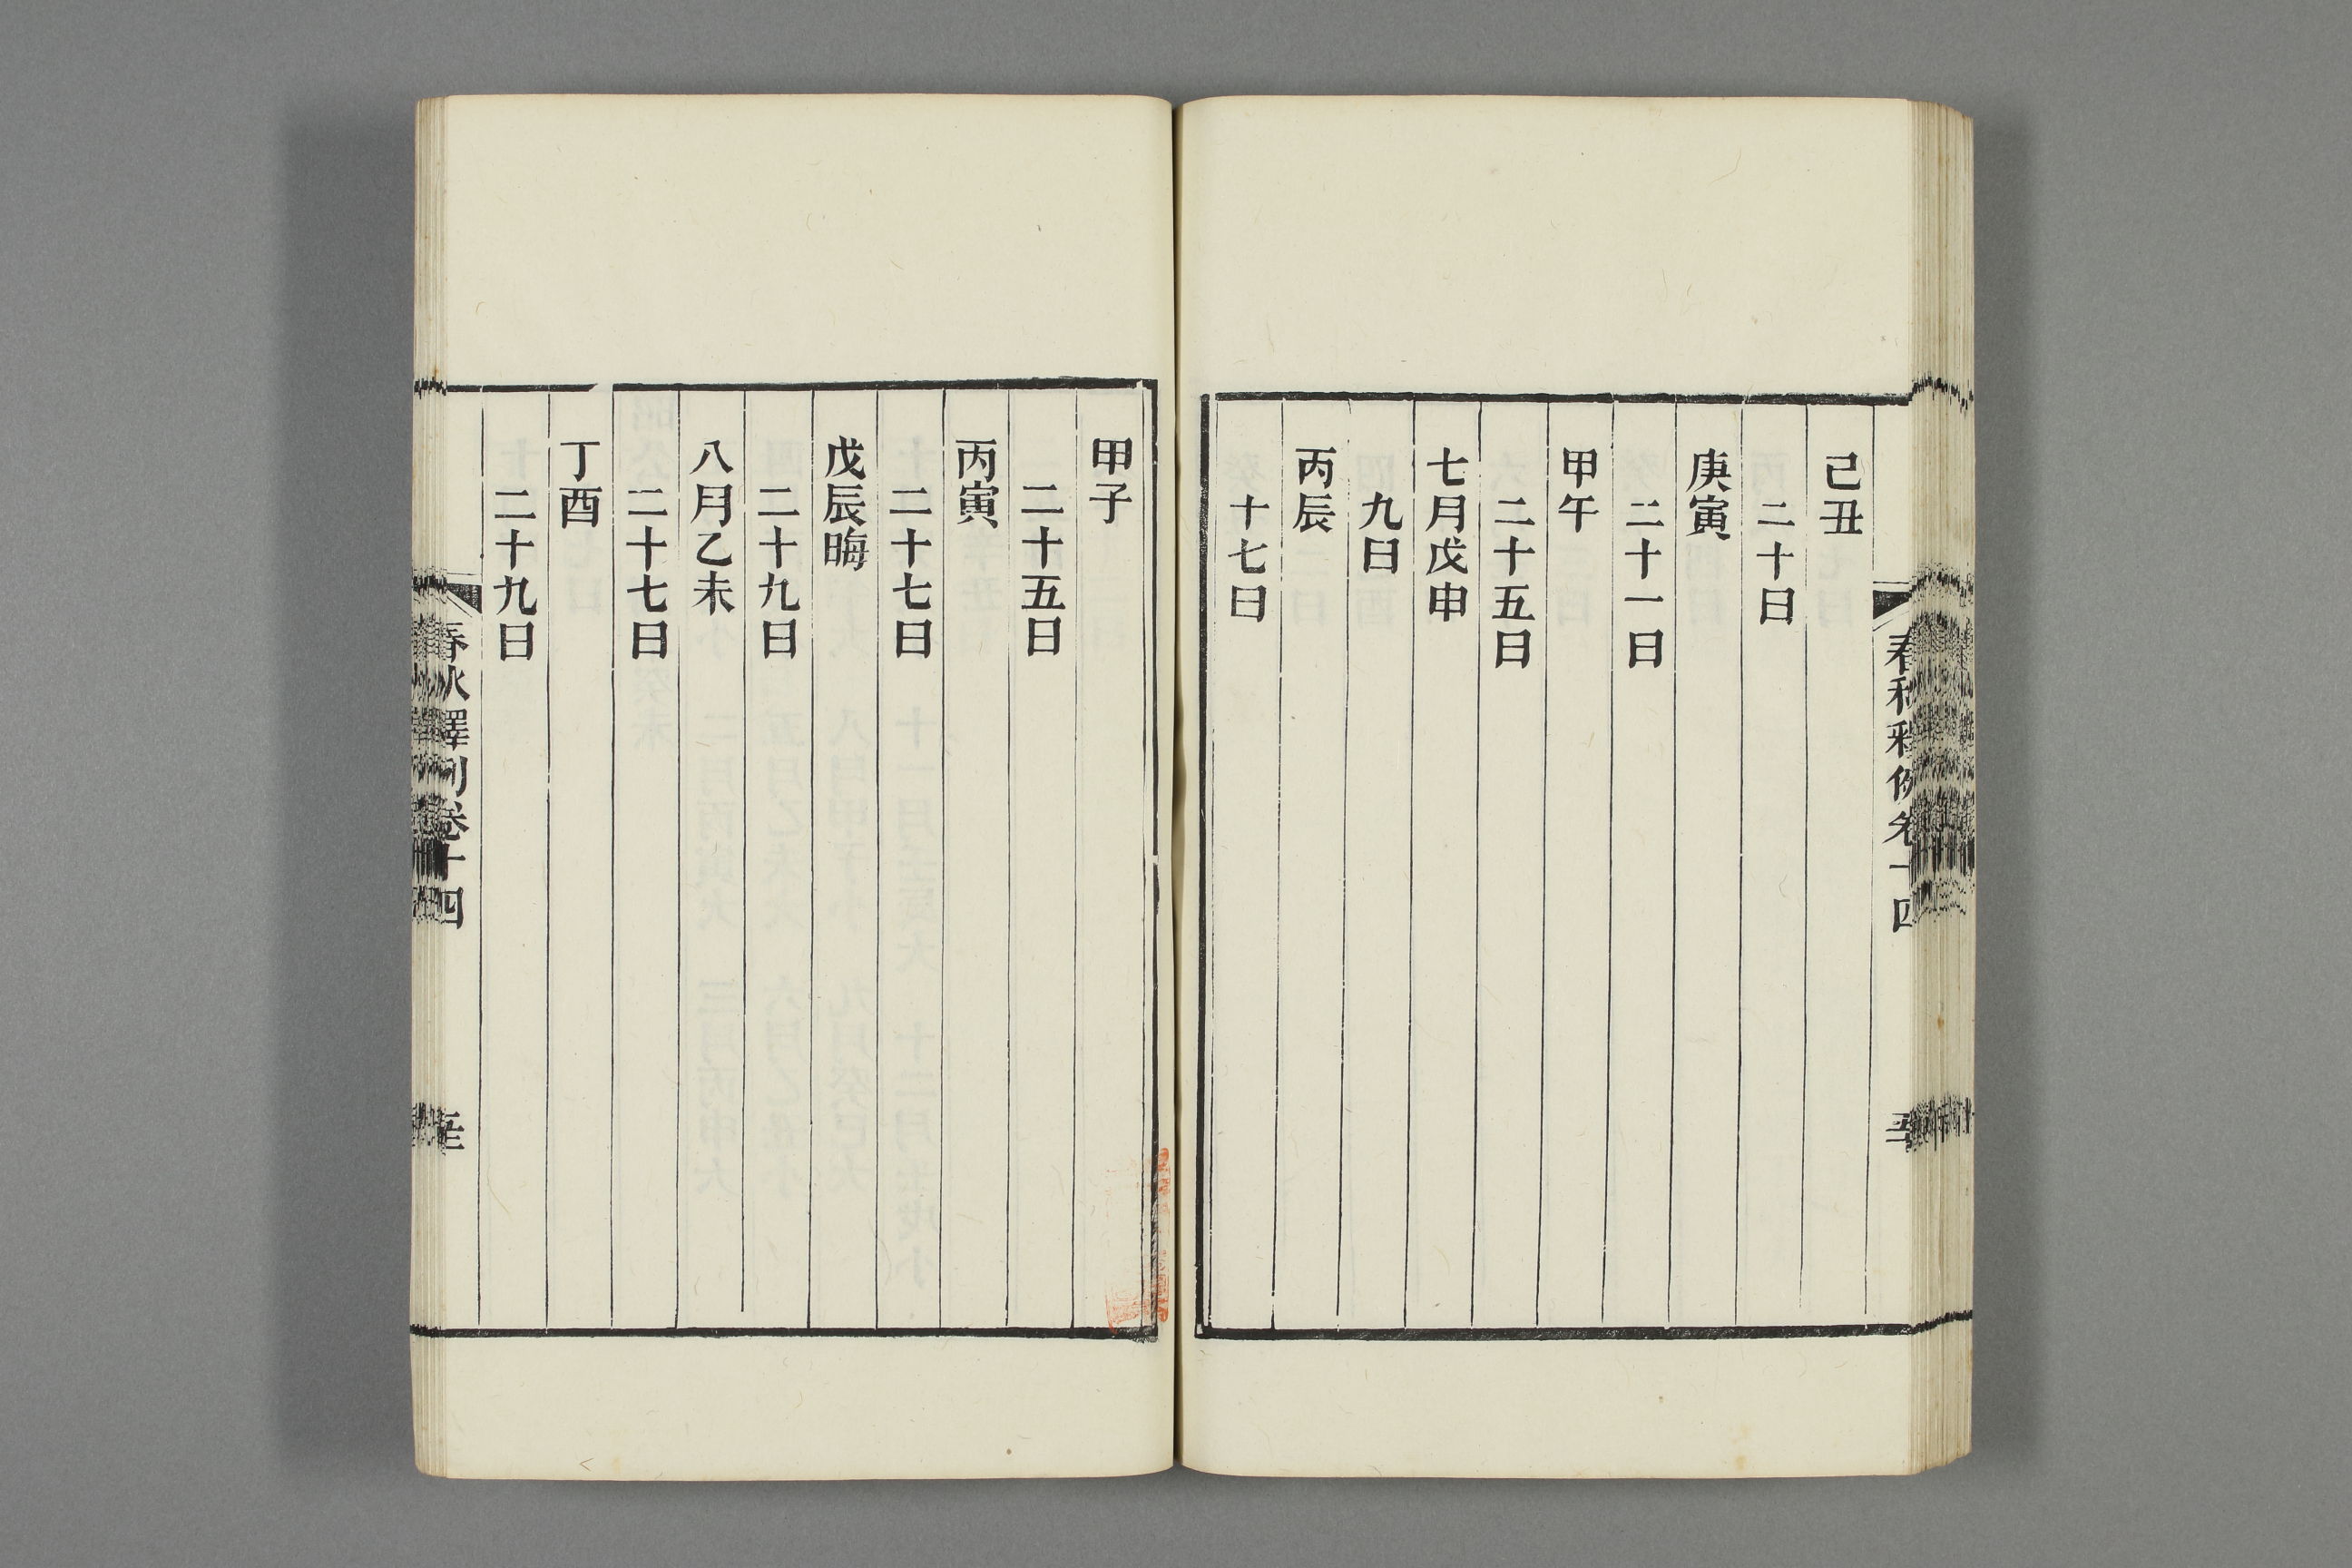 己丑
二十日
庚寅
二十一日
甲午
二十五日
七月戊申
九日
丙辰
十七日
甲子
二十五日
丙寅
二十七日
戊辰晦
二十九日
八月乙未
二十七日
丁酉
二十九日
春秋釋例卷十四